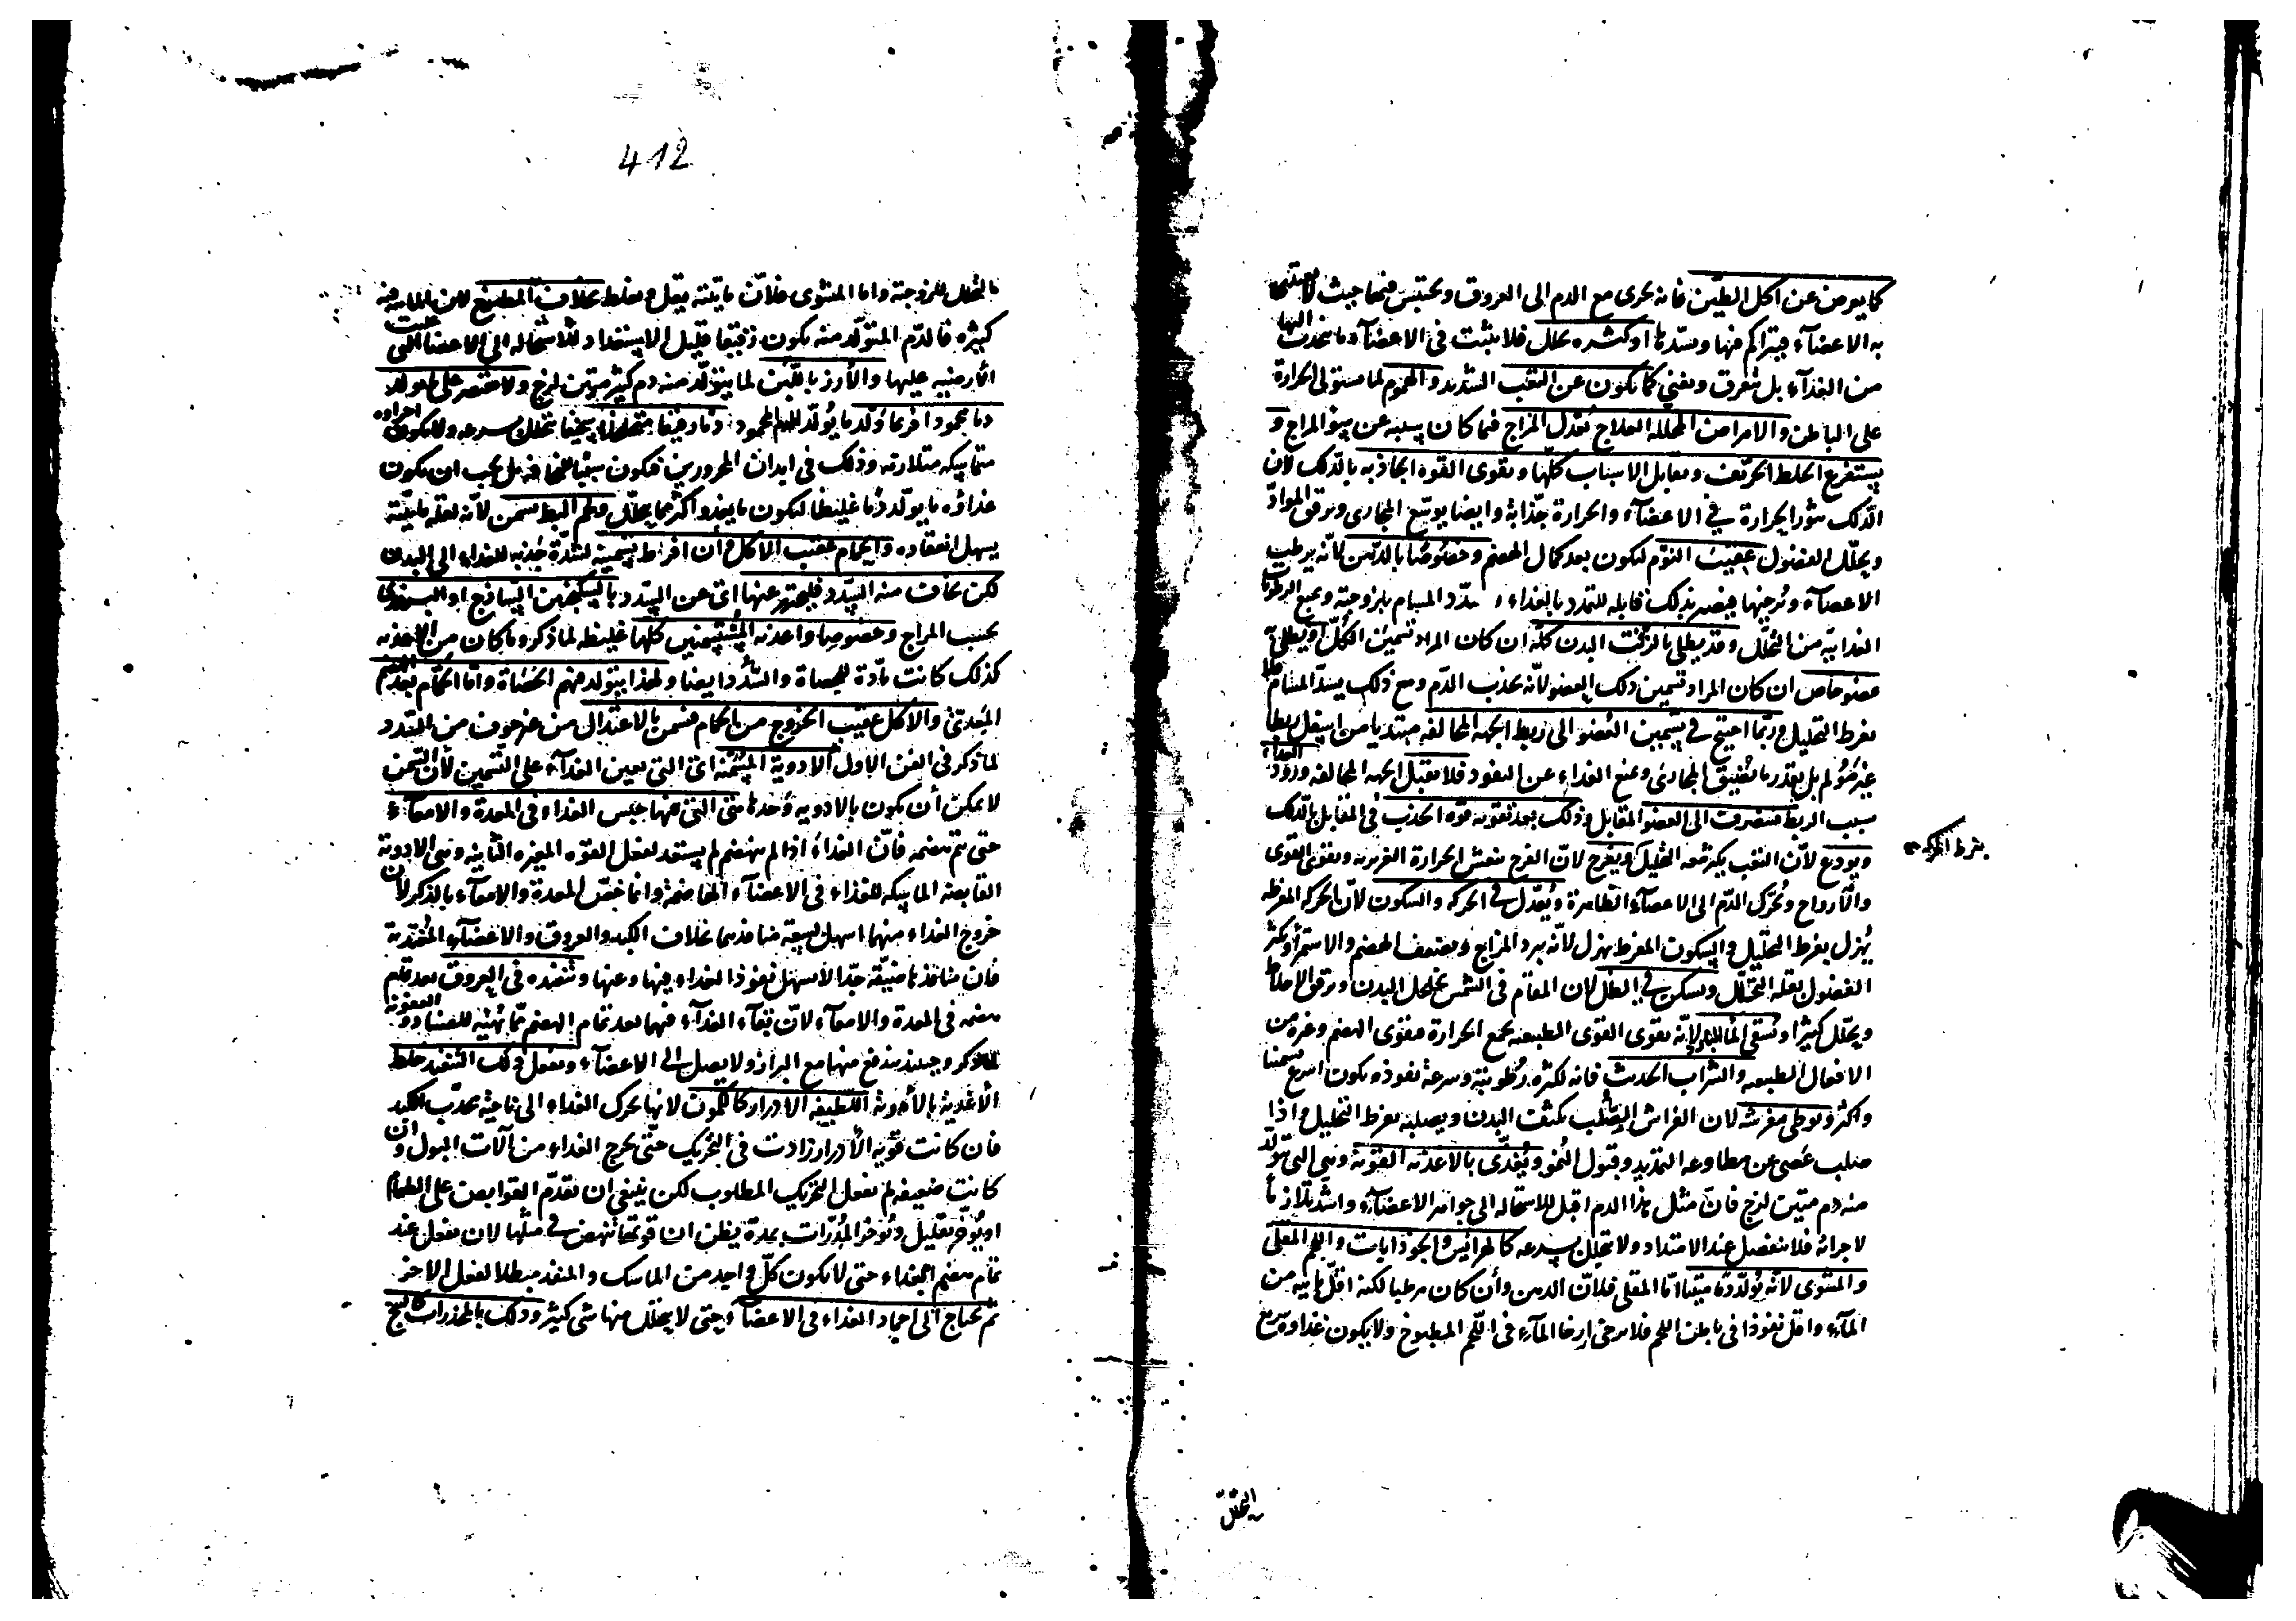 كما يعرض عن اكل الطين فانه يجرى مع الدم الى العروق ويحتبس فيها حيث لا تغتذى
به الاعضاء فيتراكم فيها ويسدها او كثره تحلل فلا يثبت فى الاعضاء ما ينجذب اليها
من الغذاء بل يتفرق ويفنى كما يكون عن التعب الشديد والهموم لما يستولى الحرارة
على الباطن والامراض المحلله العلاج تعدل المزاج فيما كان بسببه عن سوء المزاج و
يستفرغ الخلط الحريف ويقابل الاسباب كلها ويقوى القوه الجاذبه بالدلك لان
الدلك يثور الحرارة فى الاعضاء والحرارة جذابة وايضا يوسع المجارى ويرقق المواد
ويحلل الفضول عقيب النوم ليكون بعد كمال الهضم وخصوصا بالدهن لانه يرطب
الاعضاء ويرخيها فيصير بذلك قابله للتمدد بالغذاء و يسدد المسام بلزوجته ويمنع الرطوبات
الغذائيه من التحلل وقد يطلى بالزفت البدن كله ان كان المراد تسمين الكل او يطلى به
عضو خاص ان كان المراد تسمين ذلك العضو لانه يجذب الدم ومع ذلك يسد المسام
بفرط التحليل وربما احتيج فى تسمين العضو الى ربط الجهه المخالفه مبتديا من اسفل ربطا
غير مؤلم بل بقدر ما يضيق المجارى ويمنع الغذاء عن النفوذ فلا تقبل الجهه المخالفه ورود الغذاء
بسبب الربط فينصرف الى العضو المقابل وذلك بعد تقويه قوة الجذب فى المقابل بالدلك
ويودع لان التعب يكثر معه التحليل ويفرح لان الفرح ينعش الحرارة الغريزيه ويقوى القوى
بشرط الحركه
والارواح ويحرك الدم الى الاعضاء الظاهرة ويعدل فى الحركه والسكون لان الحركه المفرطه
يهزل بفرط التحليل والسكون المفرط يهزل لانه يبرد المزاج ويضعف الهضم والاستمراء ويكثر
الفضول بقله التحلل ويسكن فى الظل لان المقام فى الشمس يخلخل البدن ويرقق الاخلاط
ويحلل كثيرا ويسقى الماء البارد لانه يقوى القوى الطبيعيه بجمع الحرارة فيقوى الهضم وغيره من
الافعال الطبيعيه والشراب الحديث فانه لكثره رطوبته وسرعة نفوذه يكون اسرع تسمينا
واكثر ويوطى مفرشه لان الفراش الصلب يكثف البدن ويصلبه بفرط التحليل واذا
صلب عصى عن مطاوعه التمديد وقبول النمو ويغذى بالاغذيه القوية وهى التى يتولد
منه دم متين لزج فان مثل هذا الدم اقبل للاستحاله الى جواهر الاعضاء واشد تلازما
لاجزائه فلا ينفصل عند الامتداد ولا يتحلل بسرعه كالهرائس والجوذابات واللحم المقلى
والمشوى لانه يولد دما متينا اما المقلى فلان الدهن وان كان مرطبا لكنه اقل مائيه من
الماء واقل نفوذا فى باطن اللحم فلا يرخى ارخاء الماء فى اللحم المطبوخ ولا يكون غذاؤه سريع
التحلل
412
بالتحلل للزوجته واما المشوى فلان مائيته يقل ويغلظ بخلاف المطبوخ لان المائيه فيه
كثيره فالدم المتولد منه يكون رقيقا قليل الاستعداد للاستحاله الى الاعضاء التى غلبت
الارضيه عليها والارز باللبن لما يتولد منه دم كثير متين لزج ولا يقتصر على ما يولد
دما محمودا فربما ولد ما يولد الدم المحمود دما رقيقا متخلخلا سخيفا يتحلل بسرعه ولا يكون اجزاؤه
متماسكه متلازمه وذلك فى ابدان المحرورين فيكون سببا للنحافه بل يجب ان يكون
غذاؤه ما يولد دما غليظا ليكون ما يغذو اكثر مما يحلل ولحم البط يسمن لانه لقله مائيته
يسهل انعقاده والحمام عقيب الاكل وان افرط تسمينه لشدة جذبه للغذاء الى البدن
لكن يخاف منه السدد فليحترز عنها اى عن السدد بالسكنجبين الساذج او البزورى
بحسب المزاج وخصوصا واغذيه المستسمنين كلها غليظه لما ذكر وما كان من الاغذيه
كذلك كانت مادة للحصاة والسدد ايضا ولهذا يتولد فيهم الحصاة واما الحمام بعد الهضم
المعدى والاكل عقيب الخروج من الحمام فيسمن بالاعتدال من غير خوف من السدد
لما ذكر فى الفن الاول الادوية المسمنه اى التى يعين الغذاء على التسمين لان السمن
لا يمكن ان يكون بالادويه وحدها هى التى منها حبس الغذاء فى المعدة والامعاء
حتى يتم هضمه فان الغذاء اذا لم ينهضم لم يستعد لفعل القوه المغيره الثانيه وهى الادوية
القابضه الماسكه للغذاء فى الاعضاء الهاضمة وانما خص المعدة والامعاء بالذكر لان
خروج الغذاء منهما اسهل لسعة منافذهما بخلاف الكبد والعروق والاعضاء المغتذية
فان منافذها ضيقه جدا لا يسهل نفوذ الغذاء فيها وعنها وتنفذه فى العروق بعد تمام
هضمه فى المعدة والامعاء لان بقاء الغذاء فيهما بعد تمام الهضم مما يهيئه للفساد والعفونه
لما ذكر وحينئذ يندفع منها مع البراز ولا يصل الى الاعضاء ويفعل ذلك التنفيذ خلط
الاغذية بالادوية اللطيفه الادرار كالكمون لانها تحرك الغذاء الى ناحية محدب الكبد
فان كانت قويه الادرار زادت فى التحريك حتى يخرج الغذاء من آلات البول وان
كانت ضعيفه لم تفعل التحريك المطلوب لكن ينبغى ان تقدم القوابض على الطعام
او يؤخر بقليل ويؤخر المدرات بمدة يظن ان قوتها تنهض فى مثلها لان يفعل عند
تمام هضم الغذاء حتى لا يكون كل واحد من الماسك والمنفذ مبطلا لفعل الاخر
ثم يحتاج الى اجماد الغذاء فى الاعضاء حتى لا يتحلل منها شى كثير وذلك بالمخدرات كالبنج